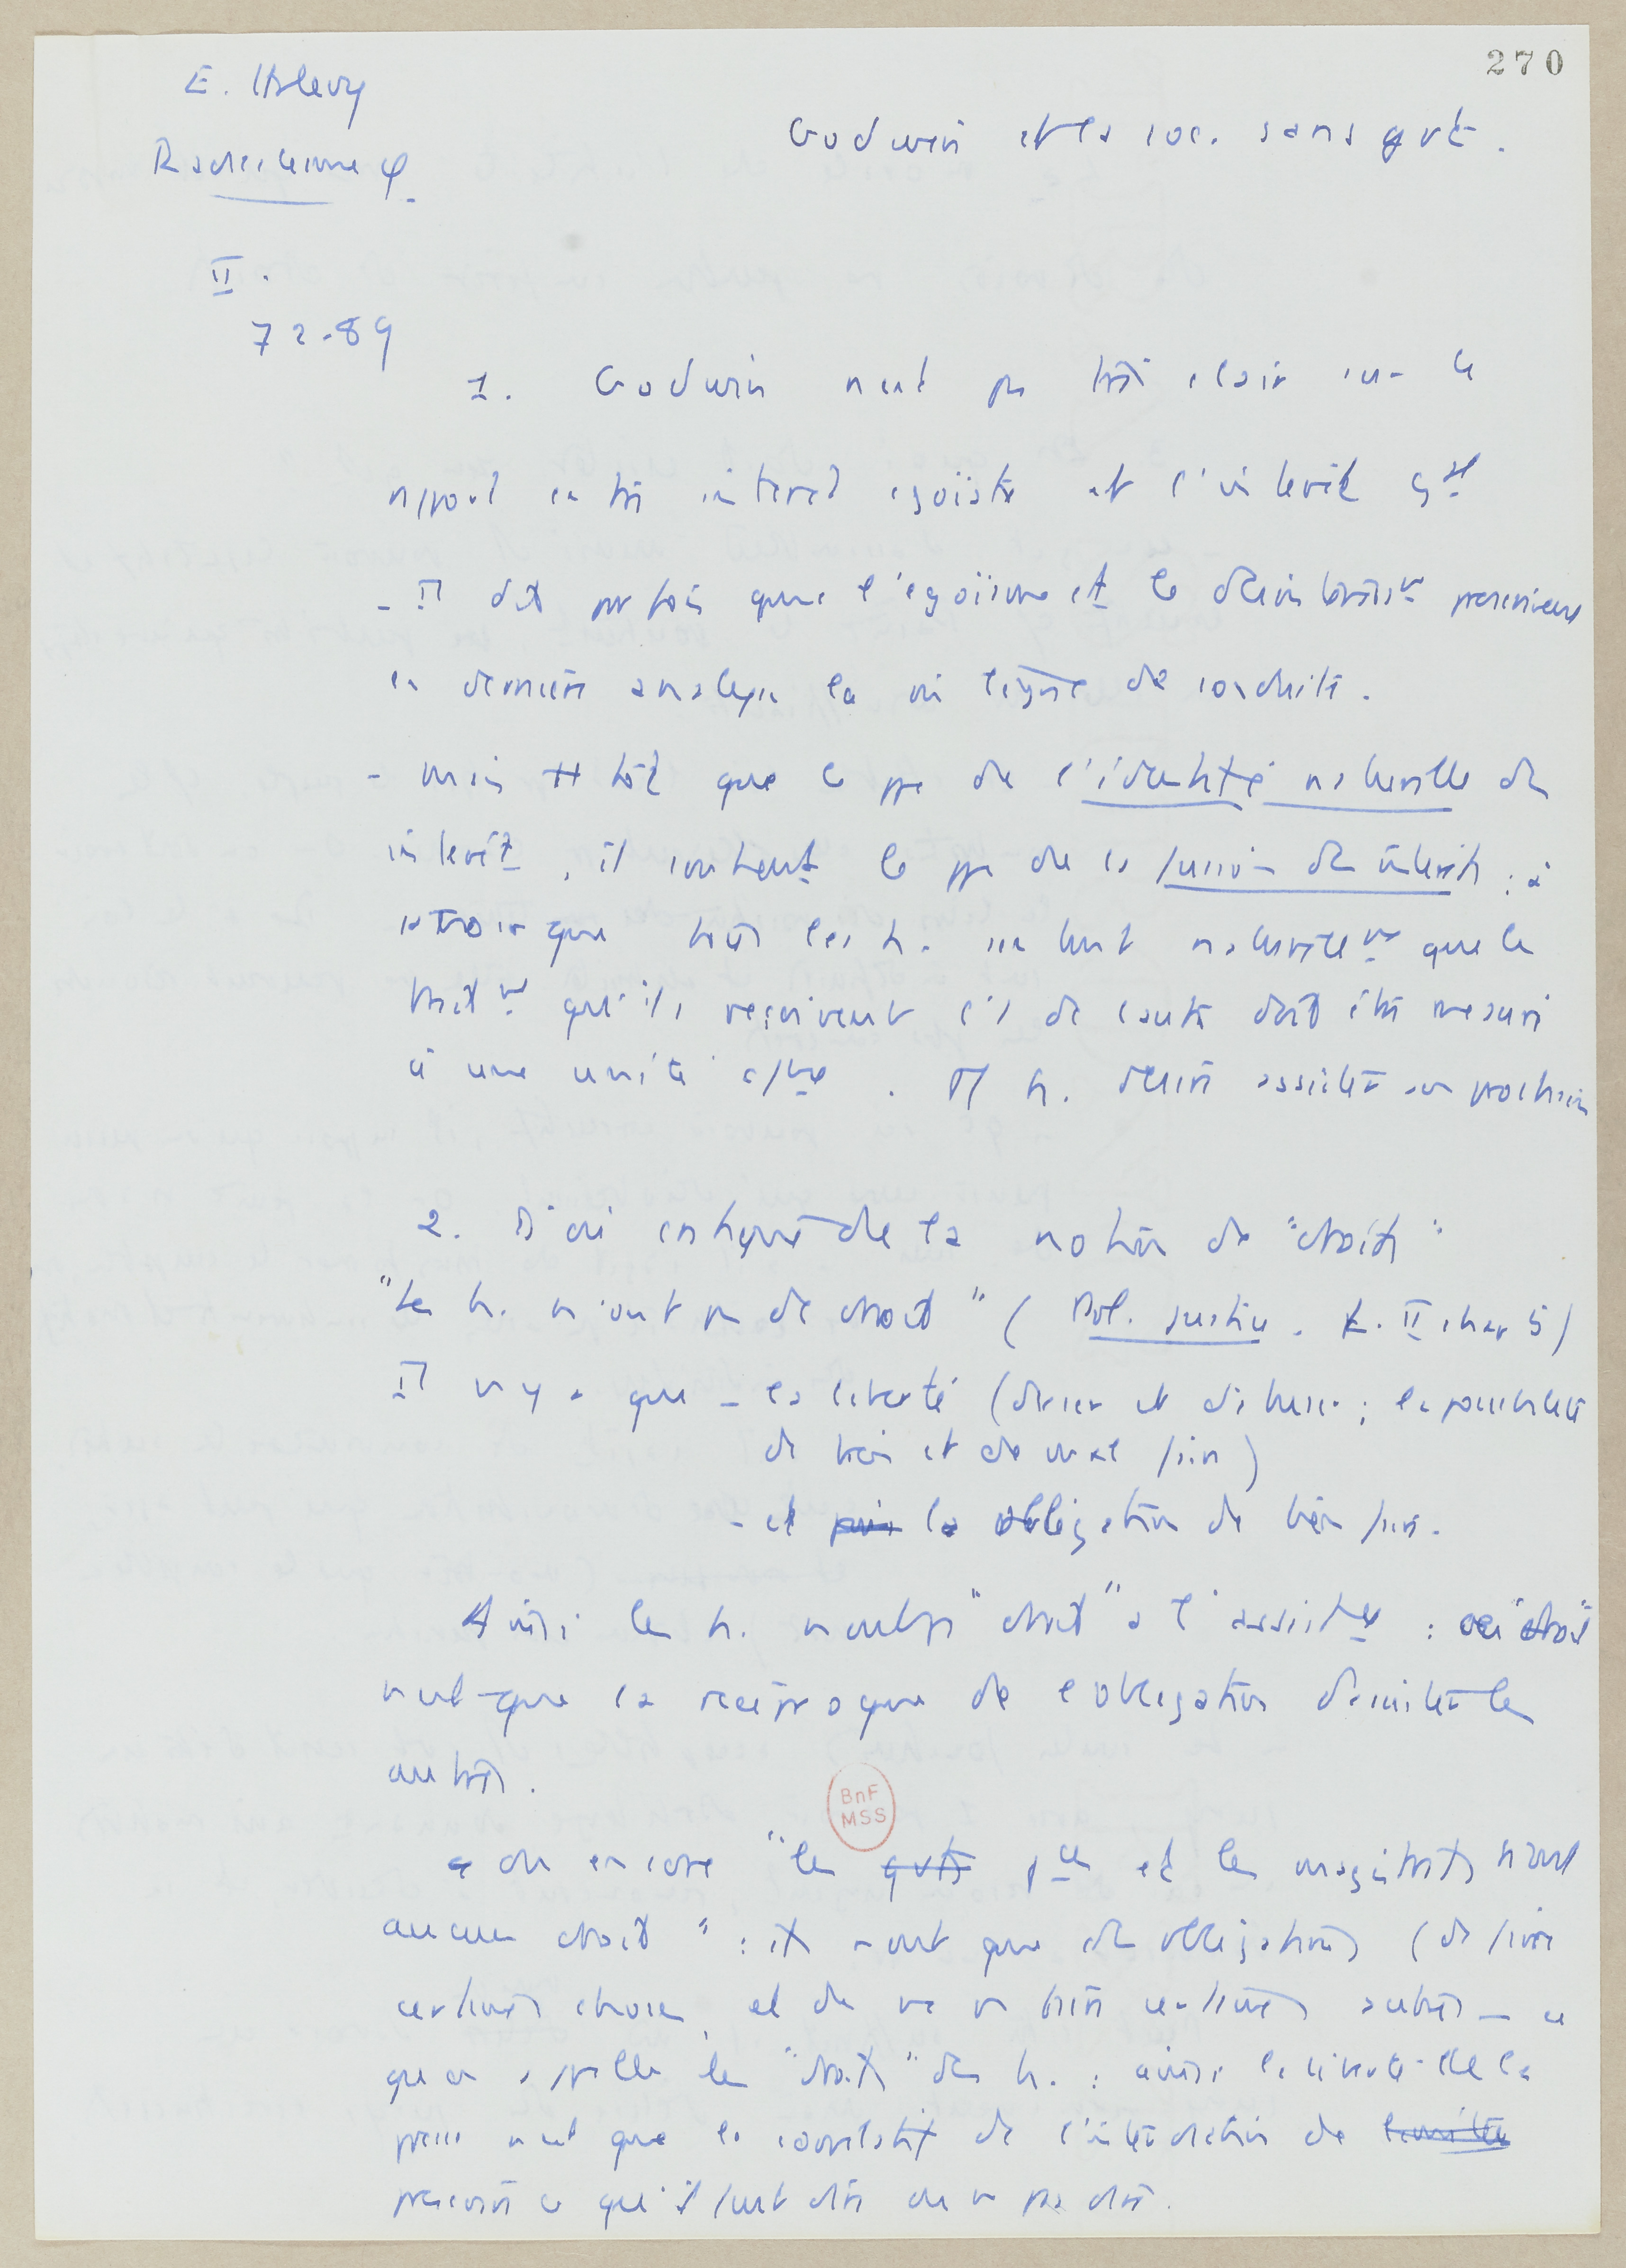 270
E. Halevy
Godwin et la soc. sans gvt.
Radicalisme φ.
II.
72-89
1. Godwin n'est pas très clair sur le
rapport entre intérêt égoïste et l'intérêt gal
- Il dit parfois que l'égoïsme et le désintéresst prescrivent
en dernière analyse la mê ligne de conduite.
- mais plutôt que le ppe de l'identité naturelle des
intérêts, il soutient le ppe de la fusion des intérêts : à
savoir que tous les h. sentent naturellemt que le
traitemt qu'ils reçoivent l's de l'autre doit être mesuré
à une unité c/ne. Tt h. désire assister son prochain
2. D'où critique de la notion de "droits"
"Les h. n'ont pas de droits" (Pol. Justice. L. II chap 5)
Il n'y a que - la liberté (d'user et d'abuser ; la possibilité
de bien et de mal faire)
- et puis la obligation de bien faire.
Ainsi les h. n'ont pas "droit" à l'assistance : ce "droit"
n'est que la réciproque de l'obligation d'assister les
autres.
ou encore "les gvts pces et les magistrats n'ont
aucun droit" : ils n'ont que des obligations (de faire
certaines choses, et de ne pas faire certaines autres - ce
qu'on appelle les "droits" des h. : ainsi la liberté de la
presse n'est que le corrélatif de l'interdiction de limiter
prescrire ce qu'il faut dire ou ne pas dire.
BnF
MSS